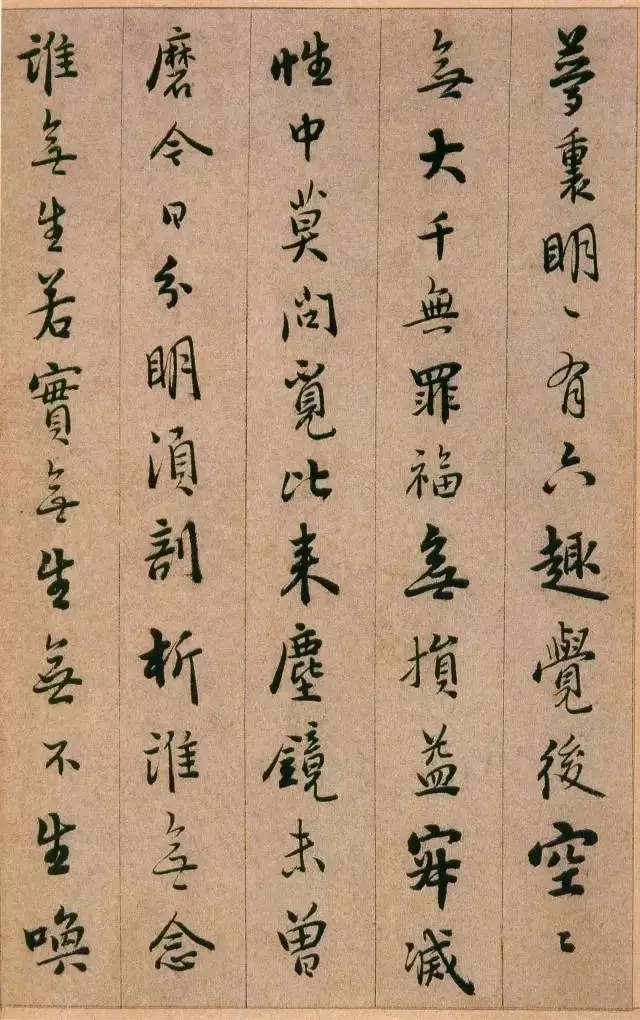 夢裏明々有六趣覺後空々
無大千無罪福無損益寂滅
性中莫問覓比來塵鏡未曾
磨今日分明須剖析誰無念
誰無生若實無生無不生喚